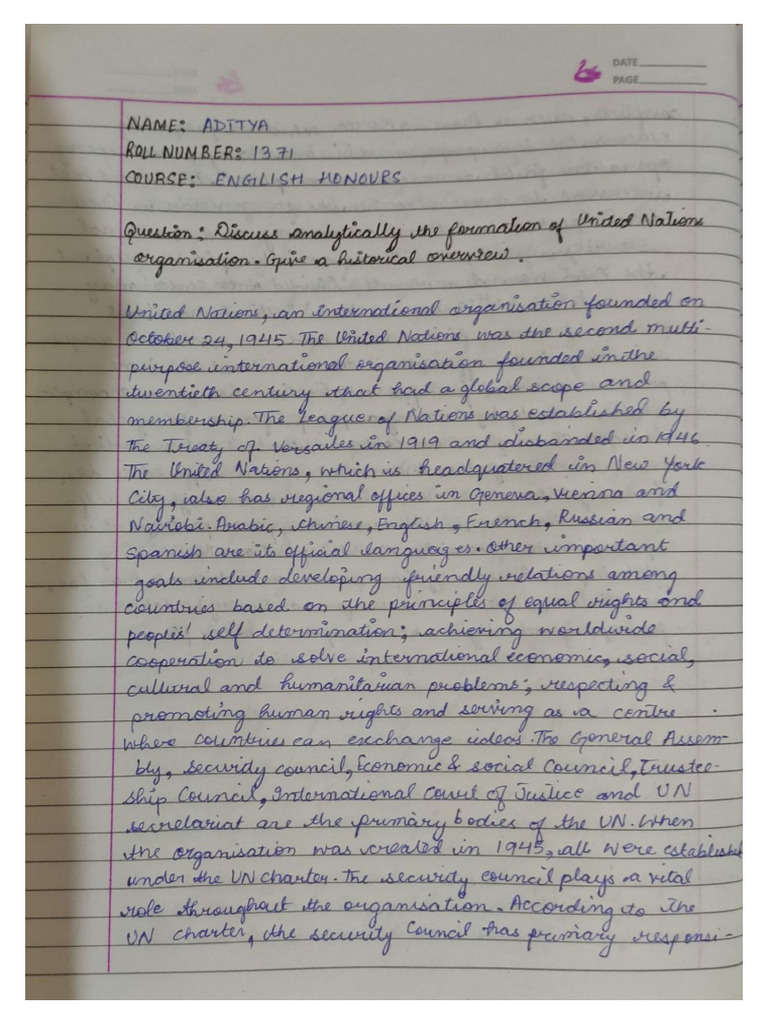 DATE
PAGE
NAME: ADITYA
ROLL NUMBER: 1371
COURSE: ENGLISH HONOURS
Question: Discuss analytically the formation of United Nations
organisation. Give a historical overview.
United Nations, an international organisation founded on
October 24, 1945. The United Nations was the second multi-
purpose international organisation founded in the
twentieth century that had a global scope and
membership. The League of Nations was established by
the Treaty of Versailes in 1919 and disbanded in 1946.
The United Nations, which is headquatered in New York
City, also has regional offices in Geneva, Vienna and
Nairobi. Arabic, Chinese, English, French, Russian and
Spanish are its official languages. Other important
goals include developing friendly relations among
countries based on the principles of equal rights and
peoples' self determination; achieving worldwide
cooperation to solve international economic, social,
cultural and humanitarian problems; respecting &
promoting human rights and serving as a centre
where countries can exchange ideas. The General Assem-
bly, Security council, Economic & social Council, Trustee-
ship Council, International Court of Justice and UN
secretariat are the primary bodies of the UN. When
the organisation was created in 1945, all were established
under the UN charter. The security council plays a vital
role throughout the organisation. According to the
UN Charter, the security Council has primary responsi-